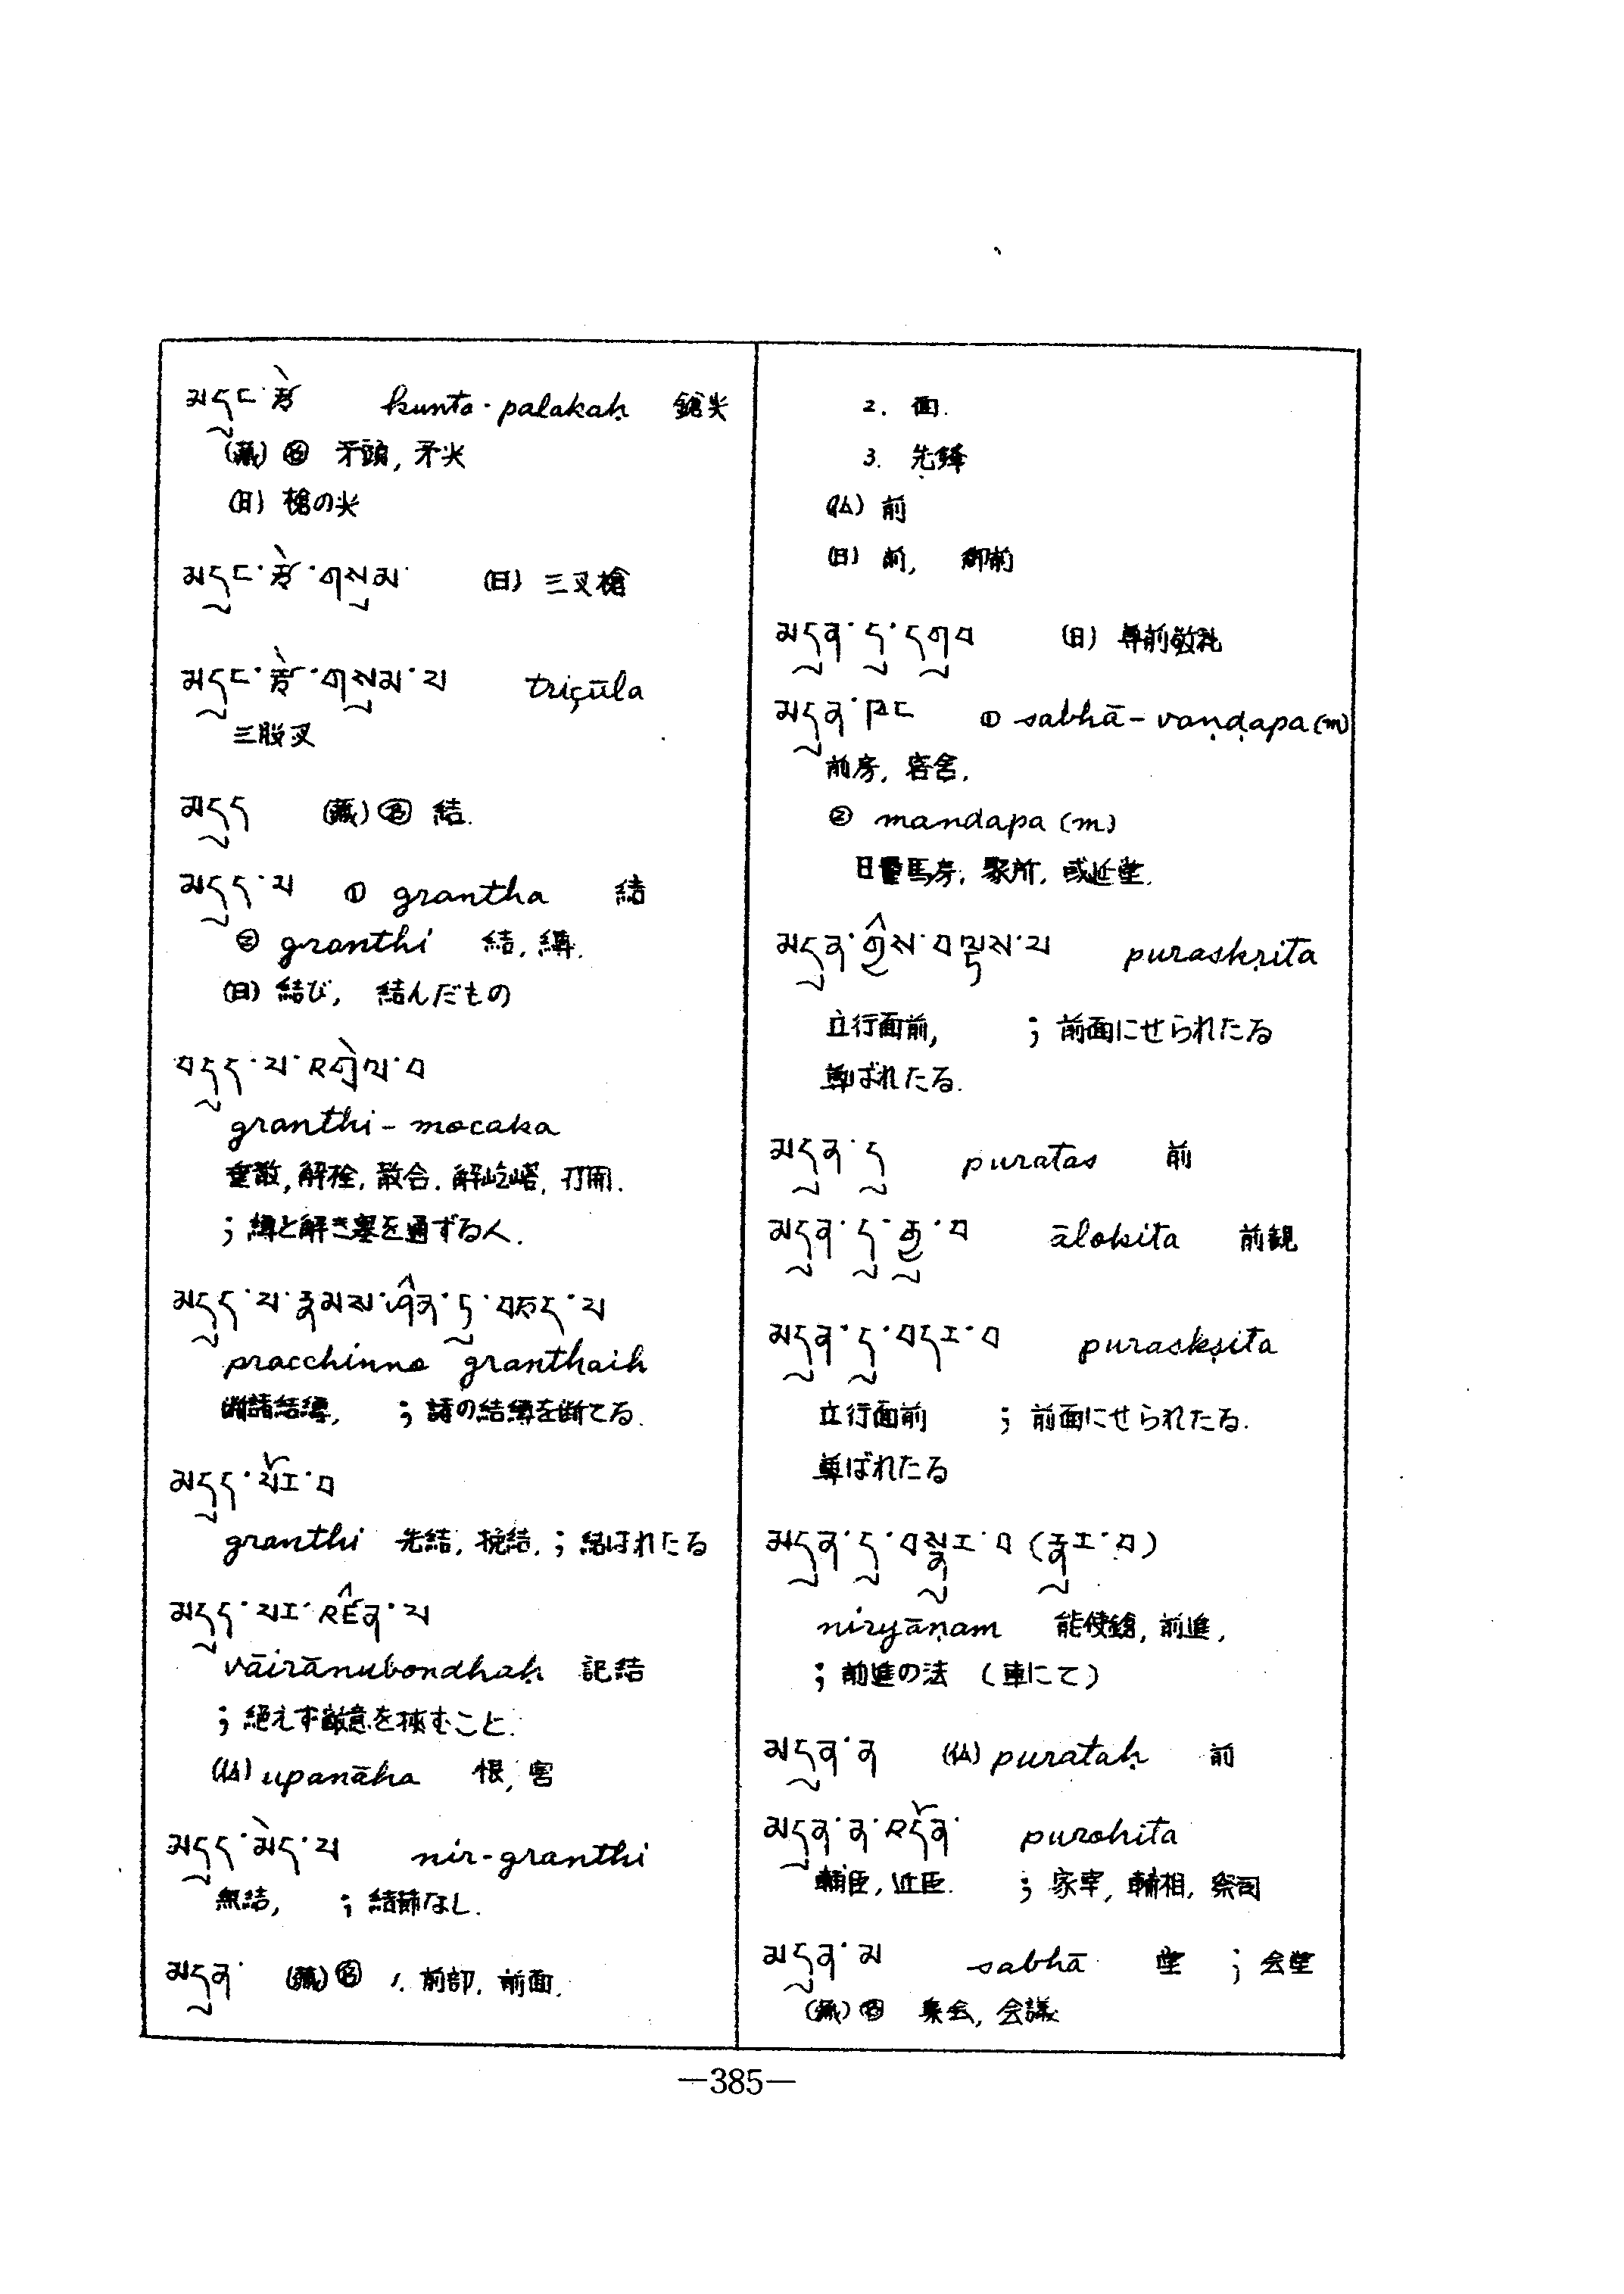 མདུང་རྩེ kunta-palakaḥ 鎗尖
(蔵) ㊔ 矛頭, 矛尖
(日) 槍の尖
མདུང་རྩེ་གསུམ་ (日) 三叉槍
མདུང་རྩེ་གསུམ་པ triçūla
三股叉
མདུད (蔵) ㊔ 結.
མདུད་པ ① grantha 結
② granthi 結, 縛.
(日) 結び, 結んだもの
བདུད་པ་འགྲེལ་བ
granthi-mocaka
垂散, 解栓, 散合. 解屹嗒, 打開.
; 縛と解き塞を通ずる人.
མདུད་པ་རྣམས་ཤིན་ཏུ་བཅད་པ
pracchinna granthaih
断諸結縛, ; 諸の結縛を断てる.
མདུད་པོར་བ
granthi 先結, 挽結, ; 結ばれたる
མདུད་པར་འཛིན་པ
vāirānubondhaḥ 記結
; 絶えず敵意を挾むこと.
(仏) upanāha 恨, 害
མདུད་མེད་པ nir-granthi
無結, ; 結節なし.
མདུན་ (蔵) ㊔ 1. 前部, 前面.
2. 面.
3. 先鋒
(仏) 前
(日) 前, 御前
མདུན་དུ་དགུབ (日) 尊前敬礼
མདུན་ཁང ① sabhā-vaṇḍapa (m)
前房, 客舎.
② mandapa (m)
馬房, 聚所, 或近堂.
མདུན་གྱིས་བལྟས་པ puraskṛita
立行面前, ; 前面にせられたる
尊ばれたる.
མདུན་དུ puratas 前
མདུན་དུ་རྒྱུ་བ ālokita 前観
མདུན་དུ་བདར་བ puraskṣita
立行面前 ; 前面にせられたる.
尊ばれたる
མདུན་དུ་བསྣུར་བ (རྣུར་བ)
niryāṇam 能使鎗, 前進,
; 前進の法 (車にて)
མདུན་ན (仏) purataḥ 前
མདུན་ན་འདོན་ purohita
輔臣, 近臣. ; 家宰, 輔相, 祭司
མདུན་མ sabhā 堂 ; 会堂
(蔵) ㊔ 集会, 会議
—385—